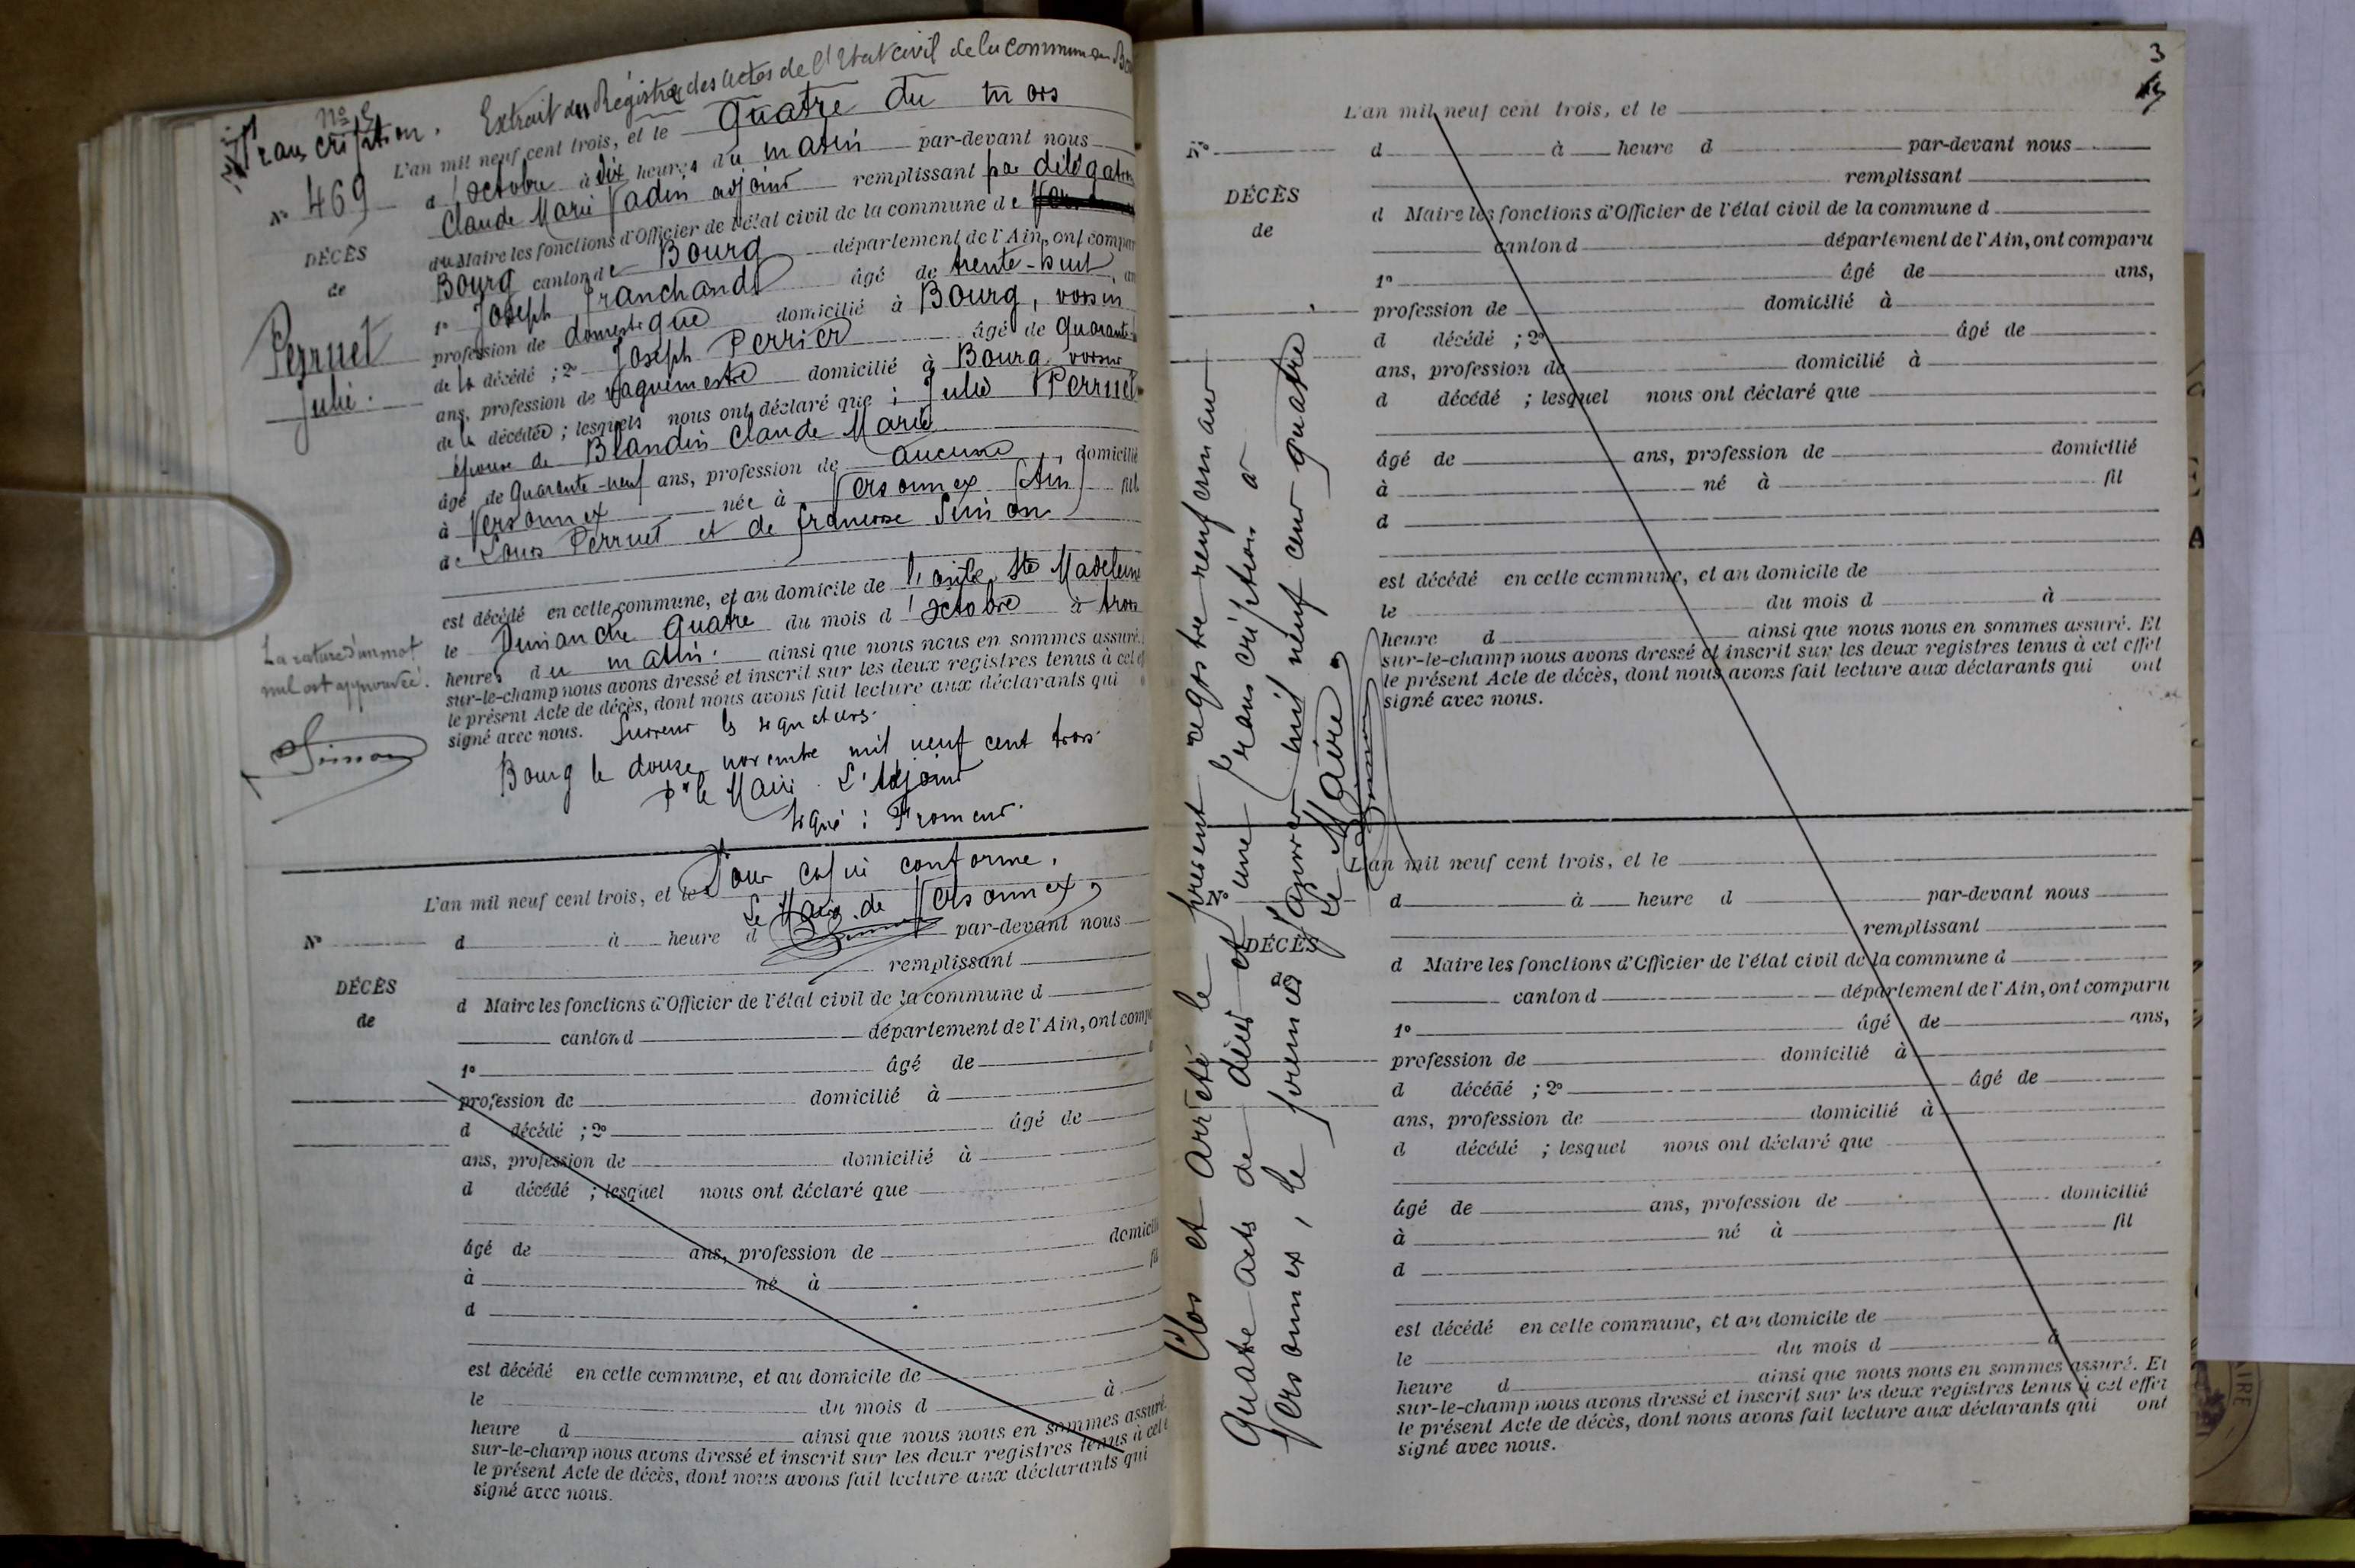 Nº 5
Transcription.
Extrait des Régistre des actes de l'Etat civil de la commune de Bou
L'an mil neuf cent trois, et le quatre du mois
Nº 469
d'octobre à dix heures du matin par-devant nous
Claude Marie Vadin adjoint remplissant par délégation
DÉCÈS
du Maire les fonctions d'Officier de l'état civil de la commune de
de
Bourg canton de Bourg département de l'Ain, ont compar
1º Joseph Franchand âgé de trente-huit an
Perruet
profession de domestique domicilié à Bourg, voisin
Julie.
de la décédé ; 2º Joseph Perrier âgé de quarante
ans, profession de vaguemestre domicilié à Bourg voisin
de la décédée ; lesquels nous ont déclaré que ; Julie Perruet
épouse de Blandin Claude Marie
âgé de quarante-neuf ans, profession de aucune, domicilié
à Versonnex née à Versonnex (Ain) fil
de Louis Perruet et de françoise Simon
est décédé en cette commune, et au domicile de l'asile Ste Madeleine
le Dimanche quatre du mois d'octobre à trois
heures du matin. ainsi que nous nous en sommes assuré.
sur-le-champ nous avons dressé et inscrit sur les deux registres tenus à cet ef
le présent Acte de décès, dont nous avons fait lecture aux déclarants qui
signé avec nous. Suivent les signatures.
La rature d'un mot
nul est approuvée.
Simon
Bourg le douze novembre mil neuf cent trois.
Pr le Maire. L'Adjoint
signé : Fromeur.
Pour copie conforme,
Le Maire de Versonnex,
L'an mil neuf cent trois, et le
Nº
d à heure d par-devant nous
remplissant
DÉCÈS
d Maire les fonctions d'Officier de l'état civil de la commune d
de
canton d département de l'Ain, ont comp
1º âgé de
profession de domicilié à
d décédé ; 2º âgé de
ans, profession de domicilié à
d décédé ; lesquel nous ont déclaré que
âgé de ans, profession de domicili
à né à fil
d
est décédé en cette commune, et au domicile de
le du mois d à
heure d ainsi que nous nous en sommes assuré.
sur-le-champ nous avons dressé et inscrit sur les deux registres tenus à cet e
le présent Acte de décès, dont nous avons fait lecture aux déclarants qui
signé avec nous.
Clos et arrêté le présent registre renfermant
quatre acts de décès et une transcription à
Versonnex, le premier janvier mil neuf cent quatre
Le Maire,
3
L'an mil neuf cent trois, et le
Nº
d à heure d par-devant nous
remplissant
DÉCÈS
d Maire les fonctions d'Officier de l'état civil de la commune d
de
canton d département de l'Ain, ont comparu
1º âgé de ans,
profession de domicilié à
d décédé ; 2º âgé de
ans, profession de domicilié à
d décédé ; lesquel nous ont déclaré que
âgé de ans, profession de domicilié
à né à fil
d
est décédé en cette commune, et au domicile de
le du mois d à
heure d ainsi que nous nous en sommes assuré. Et
sur-le-champ nous avons dressé et inscrit sur les deux registres tenus à cet effet
le présent Acte de décès, dont nous avons fait lecture aux déclarants qui ont
signé avec nous.
L'an mil neuf cent trois, et le
Nº
d à heure d par-devant nous
remplissant
DÉCÈS
d Maire les fonctions d'Officier de l'état civil de la commune d
de
canton d département de l'Ain, ont comparu
1º âgé de ans,
profession de domicilié à
d décédé ; 2º âgé de
ans, profession de domicilié à
d décédé ; lesquel nous ont déclaré que
âgé de ans, profession de domicilié
à né à fil
d
est décédé en cette commune, et au domicile de
le du mois d à
heure d ainsi que nous nous en sommes assuré. Et
sur-le-champ nous avons dressé et inscrit sur les deux registres tenus à cet effet
le présent Acte de décès, dont nous avons fait lecture aux déclarants qui ont
signé avec nous.